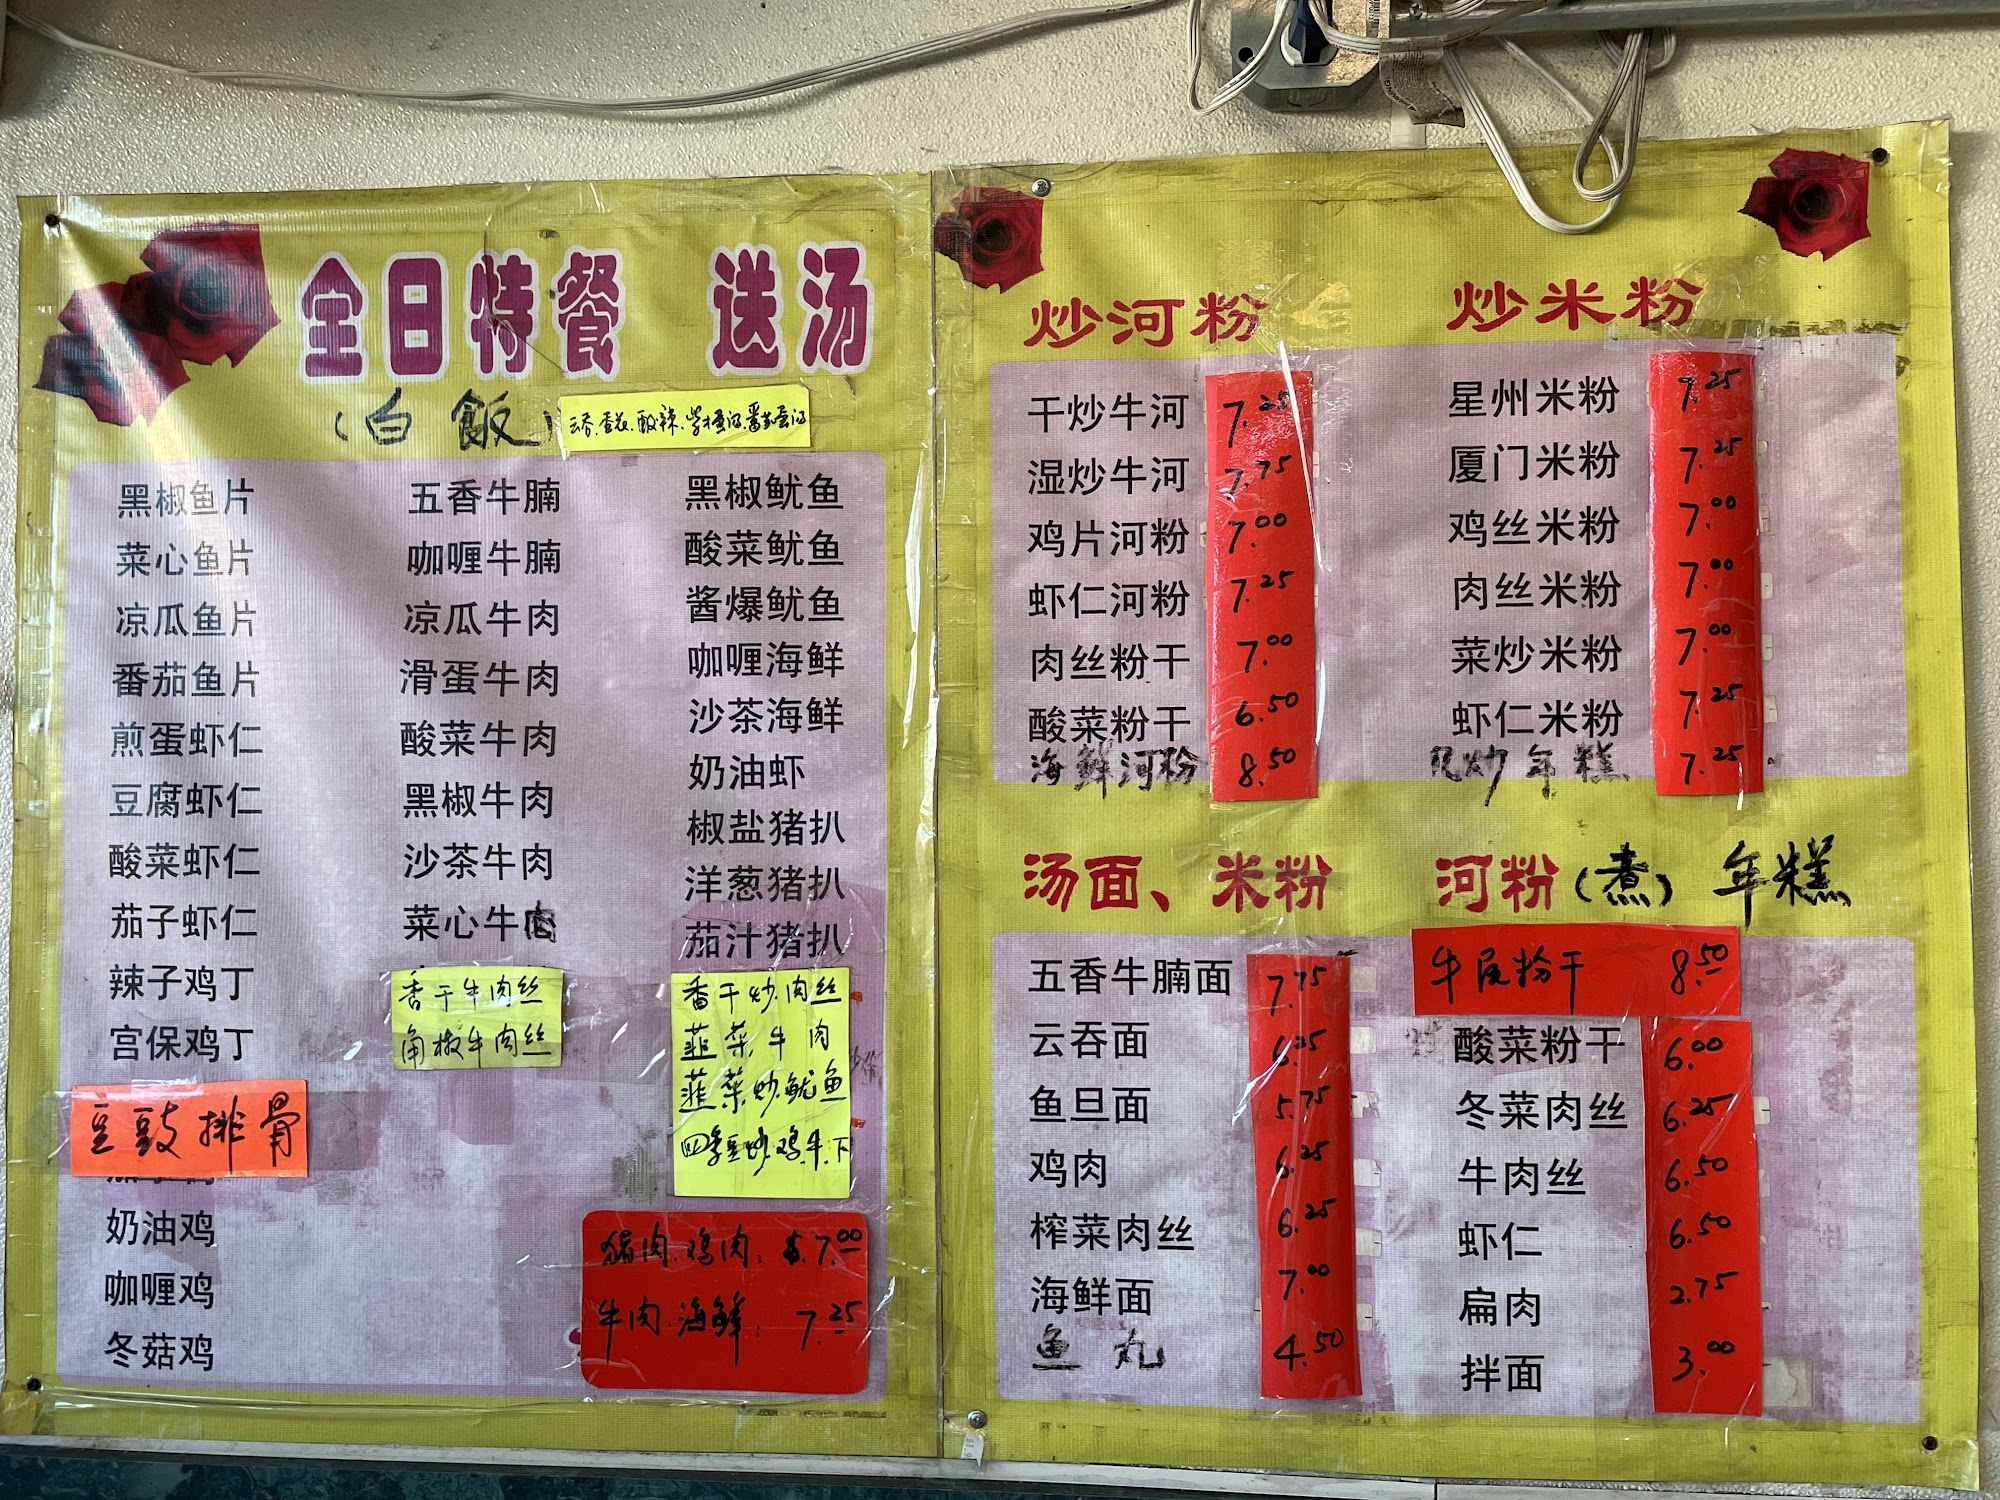 全日特餐 送汤
(白飯)
云吞.蛋花.酸辣.紫菜蛋汤.番茄蛋汤
黑椒鱼片
菜心鱼片
凉瓜鱼片
番茄鱼片
煎蛋虾仁
豆腐虾仁
酸菜虾仁
茄子虾仁
辣子鸡丁
宫保鸡丁
豆豉排骨
奶油鸡
咖喱鸡
冬菇鸡
五香牛腩
咖喱牛腩
凉瓜牛肉
滑蛋牛肉
酸菜牛肉
黑椒牛肉
沙茶牛肉
菜心牛肉
香干牛肉丝
角椒牛肉丝
黑椒鱿鱼
酸菜鱿鱼
酱爆鱿鱼
咖喱海鲜
沙茶海鲜
奶油虾
椒盐猪扒
洋葱猪扒
茄汁猪扒
香干炒肉丝
韮菜牛肉
韮菜炒鱿鱼
四季豆炒鸡.牛.下
猪肉.鸡肉: $7.00
牛肉.海鲜: 7.25
炒河粉
干炒牛河 7.25
湿炒牛河 7.75
鸡片河粉 7.00
虾仁河粉 7.25
肉丝粉干 7.00
酸菜粉干 6.50
海鲜河粉 8.50
炒米粉
星州米粉 7.25
厦门米粉 7.25
鸡丝米粉 7.00
肉丝米粉 7.00
菜炒米粉 7.00
虾仁米粉 7.25
炒年糕 7.25
汤面、米粉 河粉(煮)年糕
五香牛腩面 7.75
云吞面 6.25
鱼旦面 5.75
鸡肉 6.25
榨菜肉丝 6.25
海鲜面 7.00
鱼丸 4.50
牛尾粉干 8.50
酸菜粉干 6.00
冬菜肉丝 6.25
牛肉丝 6.50
虾仁 6.50
扁肉 2.75
拌面 3.00